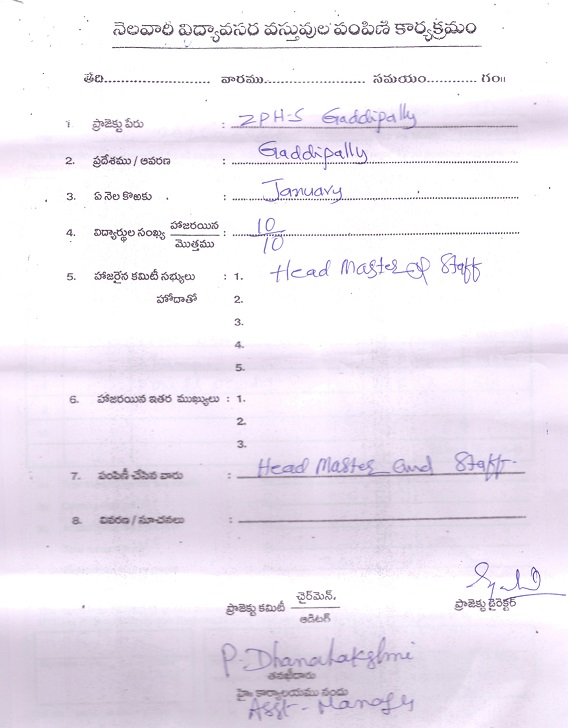 నెలవారి విద్యావసర వస్తువుల పంపిణి కార్యక్రమం
తేది........................... వారము.......................... సమయం............ గం॥
1. ప్రాజెక్టు పేరు : ZPH-S Gaddipally
2. ప్రదేశము / ఆవరణ : Gaddipally
3. ఏ నెల కొఱకు : January
4. విద్యార్థుల సంఖ్య హాజరయిన / మొత్తము : 10 / 10
5. హాజరైన కమిటీ సభ్యులు : 1. Head Master & Staff
హోదాతో 2.
3.
4.
5.
6. హాజరయిన ఇతర ముఖ్యులు : 1.
2.
3.
7. పంపిణీ చేసిన వారు : Head Master and Staff.
8. వివరణ / సూచనలు :
ప్రాజెక్టు కమిటీ ఛైర్‌మెన్, / ఆడిటర్
ప్రాజెక్టు డైరెక్టర్
P. Dhanalakshmi
తనఖీదారు
కార్యాలయము నందు
Asst-